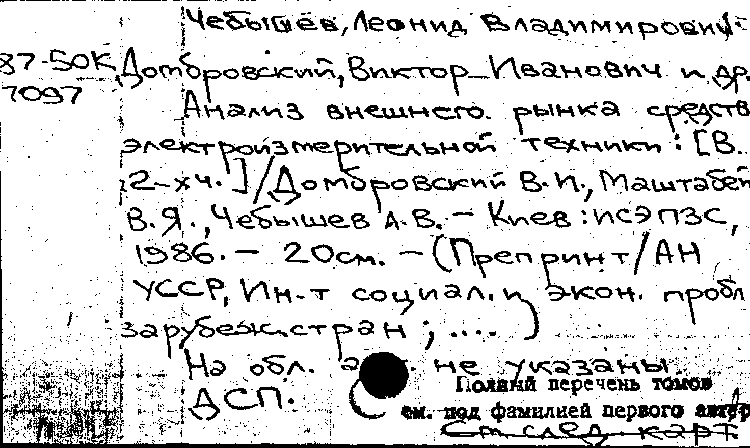 Чебышев, Леонид Владимирович
87-50К Домбровский, Виктор Иванович и др.
7097
Анализ внешнего рынка средств
электроизмерительной техники: [В
2-х ч.] / Домбровский В.И., Маштабей
В.Я., Чебышев А.В. – Киев: ИСЭПЗС,
1986. – 20см. – (Препринт / АН
УССР, Ин-т социал. и экон. пробл
зарубеж. стран ; ....)
На обл. не указаны.
ДСП.
Полный перечень томов
см. под фамилией первого автора
См след карт